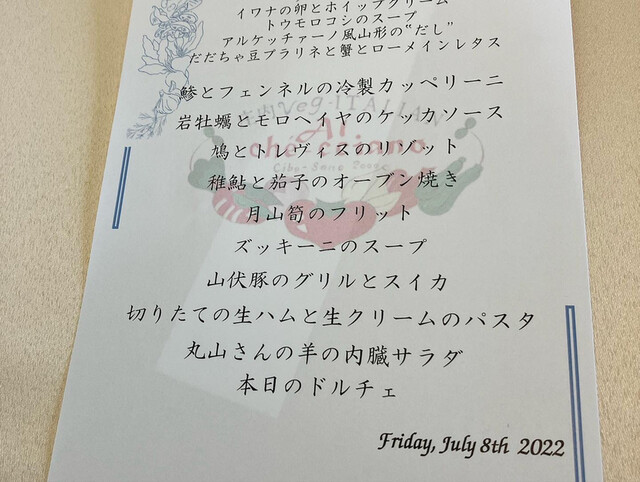 イワナの卵とホイップクリーム
トウモロコシのスープ
アルケッチァーノ風山形の"だし"
だだちゃ豆プラリネと蟹とローメインレタス
鯵とフェンネルの冷製カッペリーニ
岩牡蠣とモロヘイヤのケッカソース
鳩とトレヴィスのリゾット
稚鮎と茄子のオーブン焼き
月山筍のフリット
ズッキーニのスープ
山伏豚のグリルとスイカ
切りたての生ハムと生クリームのパスタ
丸山さんの羊の内臓サラダ
本日のドルチェ
Friday, July 8th 2022
Veg-ITALIAN
Al
ché-cciano